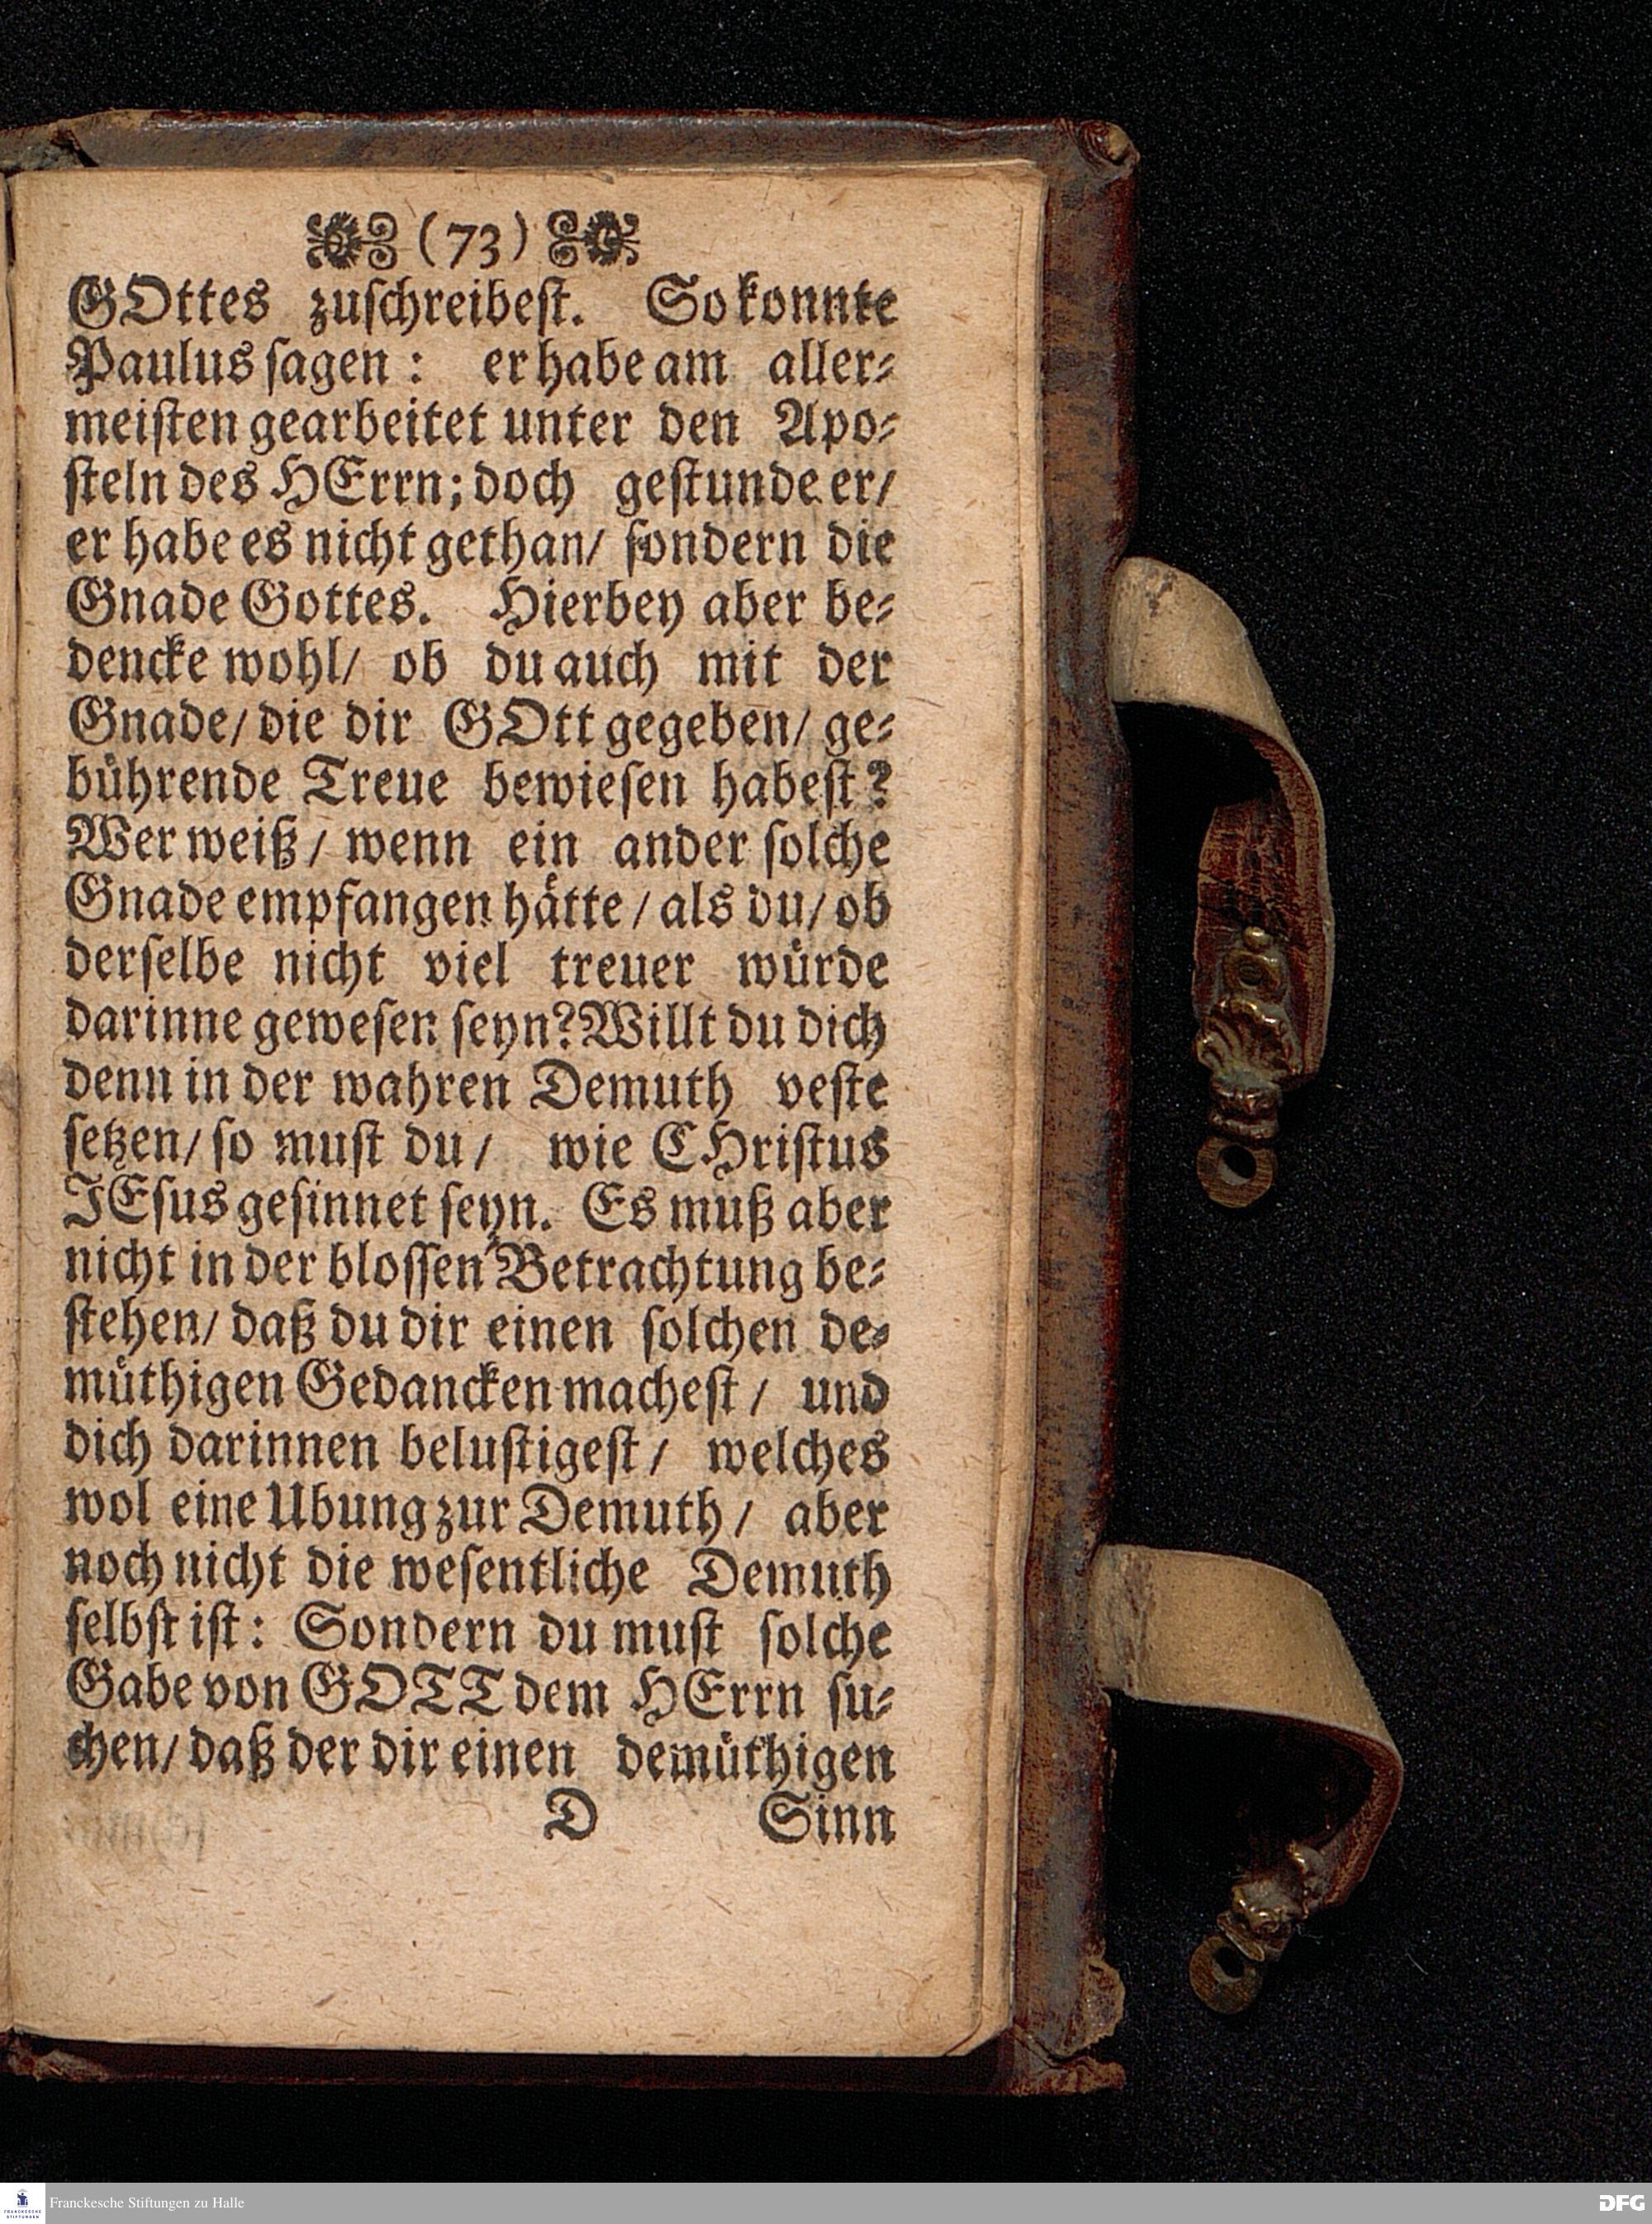 (73)
GOttes zuſchreibeſt. So konnte
Paulus ſagen: er habe am aller⸗
meiſten gearbeitet unter den Apo⸗
ſteln des HErrn; doch geſtunde er/
er habe es nicht gethan/ ſondern die
Gnade Gottes. Hierbey aber be⸗
dencke wohl/ ob du auch mit der
Gnade/ die dir GOtt gegeben/ ge⸗
buͤhrende Treue bewieſen habeſt?
Wer weiß/ wenn ein ander ſolche
Gnade empfangen haͤtte/ als du/ ob
derſelbe nicht viel treuer wuͤrde
darinne geweſen ſeyn? Willt du dich
denn in der wahren Demuth veſte
ſetzen/ ſo muſt du/ wie CHriſtus
JEſus geſinnet ſeyn. Es muß aber
nicht in der bloſſen Betrachtung be⸗
ſtehen/ daß du dir einen ſolchen de⸗
muͤthigen Gedancken macheſt/ und
dich darinnen beluſtigeſt/ welches
wol eine Ubung zur Demuth/ aber
noch nicht die weſentliche Demuth
ſelbſt iſt: Sondern du muſt ſolche
Gabe von GOTT dem HErrn ſu⸗
chen/ daß der dir einen demuͤthigen
D Sinn
Franckesche Stiftungen zu Halle
DFG